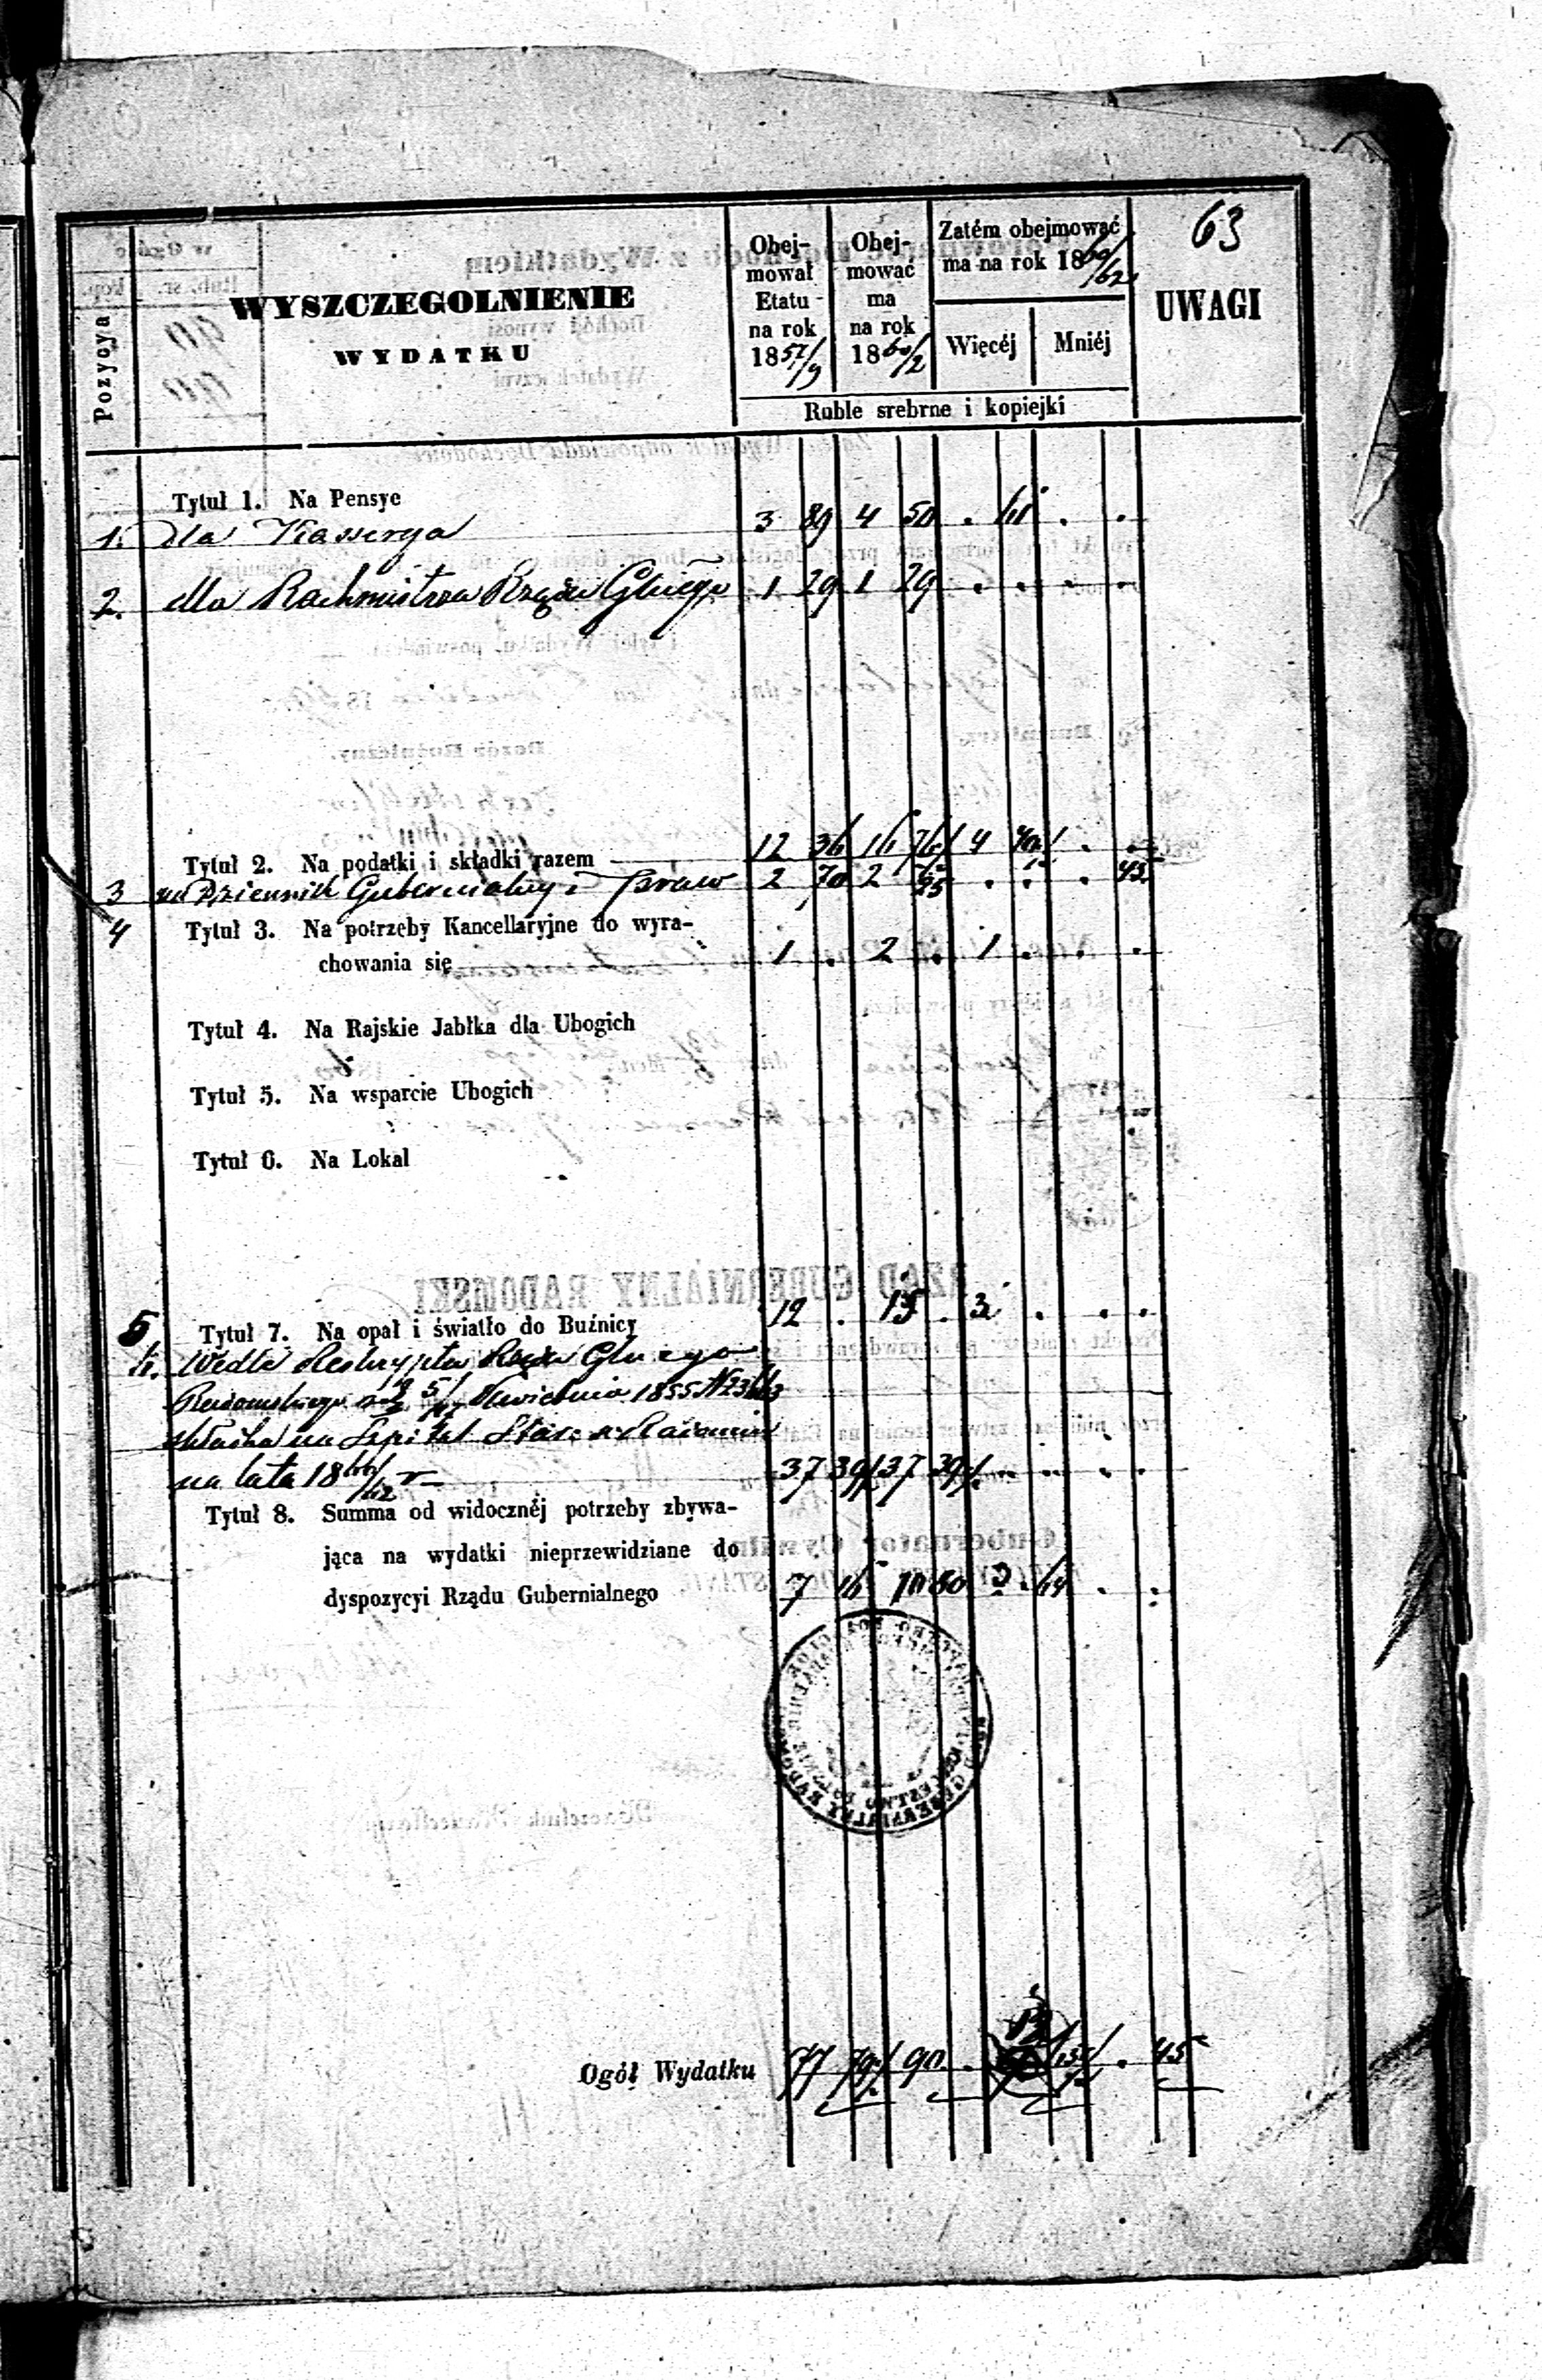 63
Pozycya
WYSZCZEGOLNIENIE
WYDATKU
Obej-
mował
Etatu
na rok
1857/9
Obej-
mować
ma
na rok
1860/2
Zatém obejmować
ma na rok 1860/62
Więcéj
Mniéj
UWAGI
Ruble srebrne i kopiejki
Tytuł 1. Na Pensye
1. dla Kassyera 3 89 4 50 . 61 . .
2. dla Rachmistrza Rządu Glnego 1 29 1 29 . . . .
Tytuł 2. Na podatki i składki razem 12 36 16 76 1/2 4 40 1/2 . .
3 na Dziennik Gubernialny i praw 2 70 2 25 . . . 45
4 Tytuł 3. Na potrzeby Kancellaryjne do wyra-
chowania się 1 . 2 . 1 . . .
Tytuł 4. Na Rajskie Jabłka dla Ubogich
Tytuł 5. Na wsparcie Ubogich
Tytuł 6. Na Lokal
5 Tytuł 7. Na opał i światło do Buźnicy 12 . 15 . 3 . . .
6. Wedle Reskryptu Rządu Glnego
Radomskiego Kwietnia 1855 N
składka na Szpital Star: w Radomiu
na lata 1860/62 r 37 39 1/2 37 39 1/2 . . . .
Tytuł 8. Summa od widocznéj potrzeby zbywa-
jąca na wydatki nieprzewidziane do
dyspozycyi Rządu Gubernialnego 7 16 10 80 3 64 . .
Ogół Wydatku 77 79 1/2 90 . 12 65 1/2 . 45